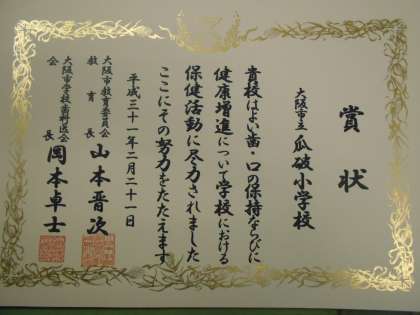 賞状
大阪市立瓜破小学校
貴校はよい歯・口の保持ならびに
健康増進について学校における
保健活動に尽力されました
ここにその努力をたたえます
平成三十一年二月二十一日
大阪市教育委員会
教育長 山本晋次
大阪市学校歯科医会
会長 岡本卓士